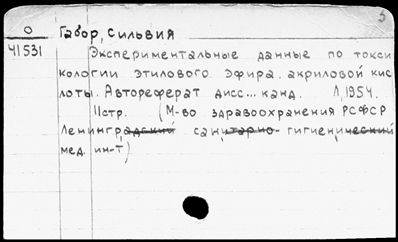 5
О Габор, Сильвия
41531 Экспериментальные данные по токси
кологии этилового эфира акриловой кис
лоты. Автореферат дисс... канд. Л, 1954.
11стр. (М-во здравоохранения РСФСР
Ленинградский санитарно-гигиенический
мед. ин-т)